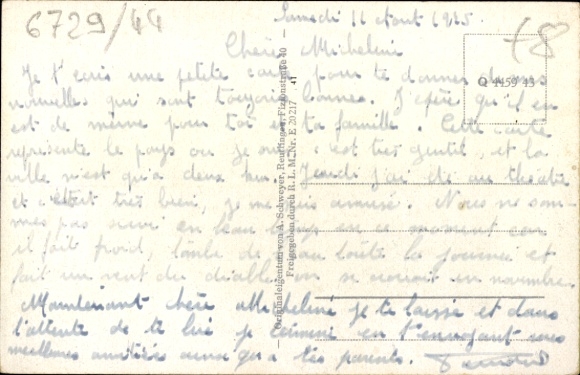 6729/44
Samedi 11 Aout 1945.
+8
Chère Micheline
Je t'ecris une petite carte pour te donner de mes
nouvelles qui sont toujours bonnes. J'espère qu'il en
est de même pour toi et ta famille. Cette carte
représente le pays ou je suis c'est très gentil, et la
ville n'est qu'a deux kms. Jeudi j'ai été au théatre
et c'était très bien, je me suis amusé. Nous ne som-
mes pas en ce moment car
il fait froid, tombe de l'eau toute la journée et
fait un vent du diable on se croirait en novembre.
Maintenant chère Micheline je te laisse et dans
l'attente de te lire je termine en t'envoyant mes
meilleures amitiés ainsi qu'a tes parents.
Q 4459 43
Originaleigentum von A. Schweyer, Reutlingen, 40
Freigegeben durch R. L. M. Nr. E 20217 41